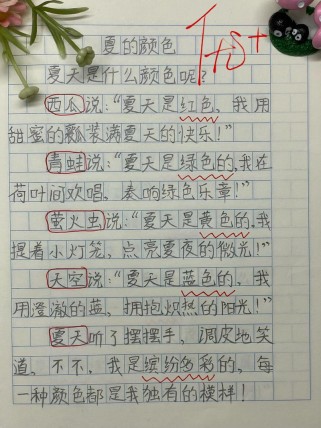 夏的颜色
夏天是什么颜色呢?
西瓜说:“夏天是红色,我用
甜蜜的瓤装满夏天的快乐!”
青蛙说:“夏天是绿色的,我在
荷叶间欢唱,奏响绿色乐章!”
萤火虫说:“夏天是黄色的,我
提着小灯笼,点亮夏夜的微光!”
天空说:“夏天是蓝色的,我
用澄澈的蓝,拥抱炽热的阳光!”
夏天听了摆摆手,调皮地笑
道,不不,我是缤纷多彩的,每
一种颜色都是我独有的模样!